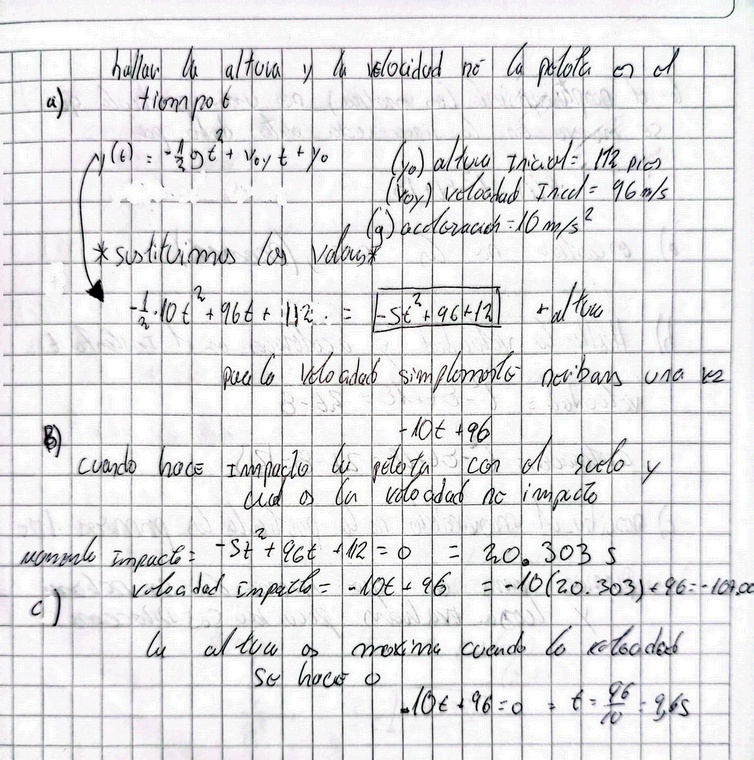 hallar la altura y la velocidad de la pelota en el
a) tiempo t
y(t) = -1/2 gt² + v₀y t + y₀
(y₀) altura Inicial = 112 pies
(v₀y) velocidad Inicial = 96 m/s
(g) aceleracion = 10 m/s²
*sustituimos los valores*
-1/2·10t² + 96t + 112. = -5t² + 96 + 12 → altura
para la velocidad simplemente deribams una vez
-10t + 96
B)
cuando hace Impacto la pelota con el suelo y
cual es la velocidad de impacto
momento Impacto = -5t² + 96t + 12 = 0 = 20.303 s
velocidad Impacto = -10t + 96 = -10(20.303) + 96 =
c)
la altura es maxima cuando la velocidad
se hace 0
-10t + 96 = 0 = t = 96/10 = 9,6s